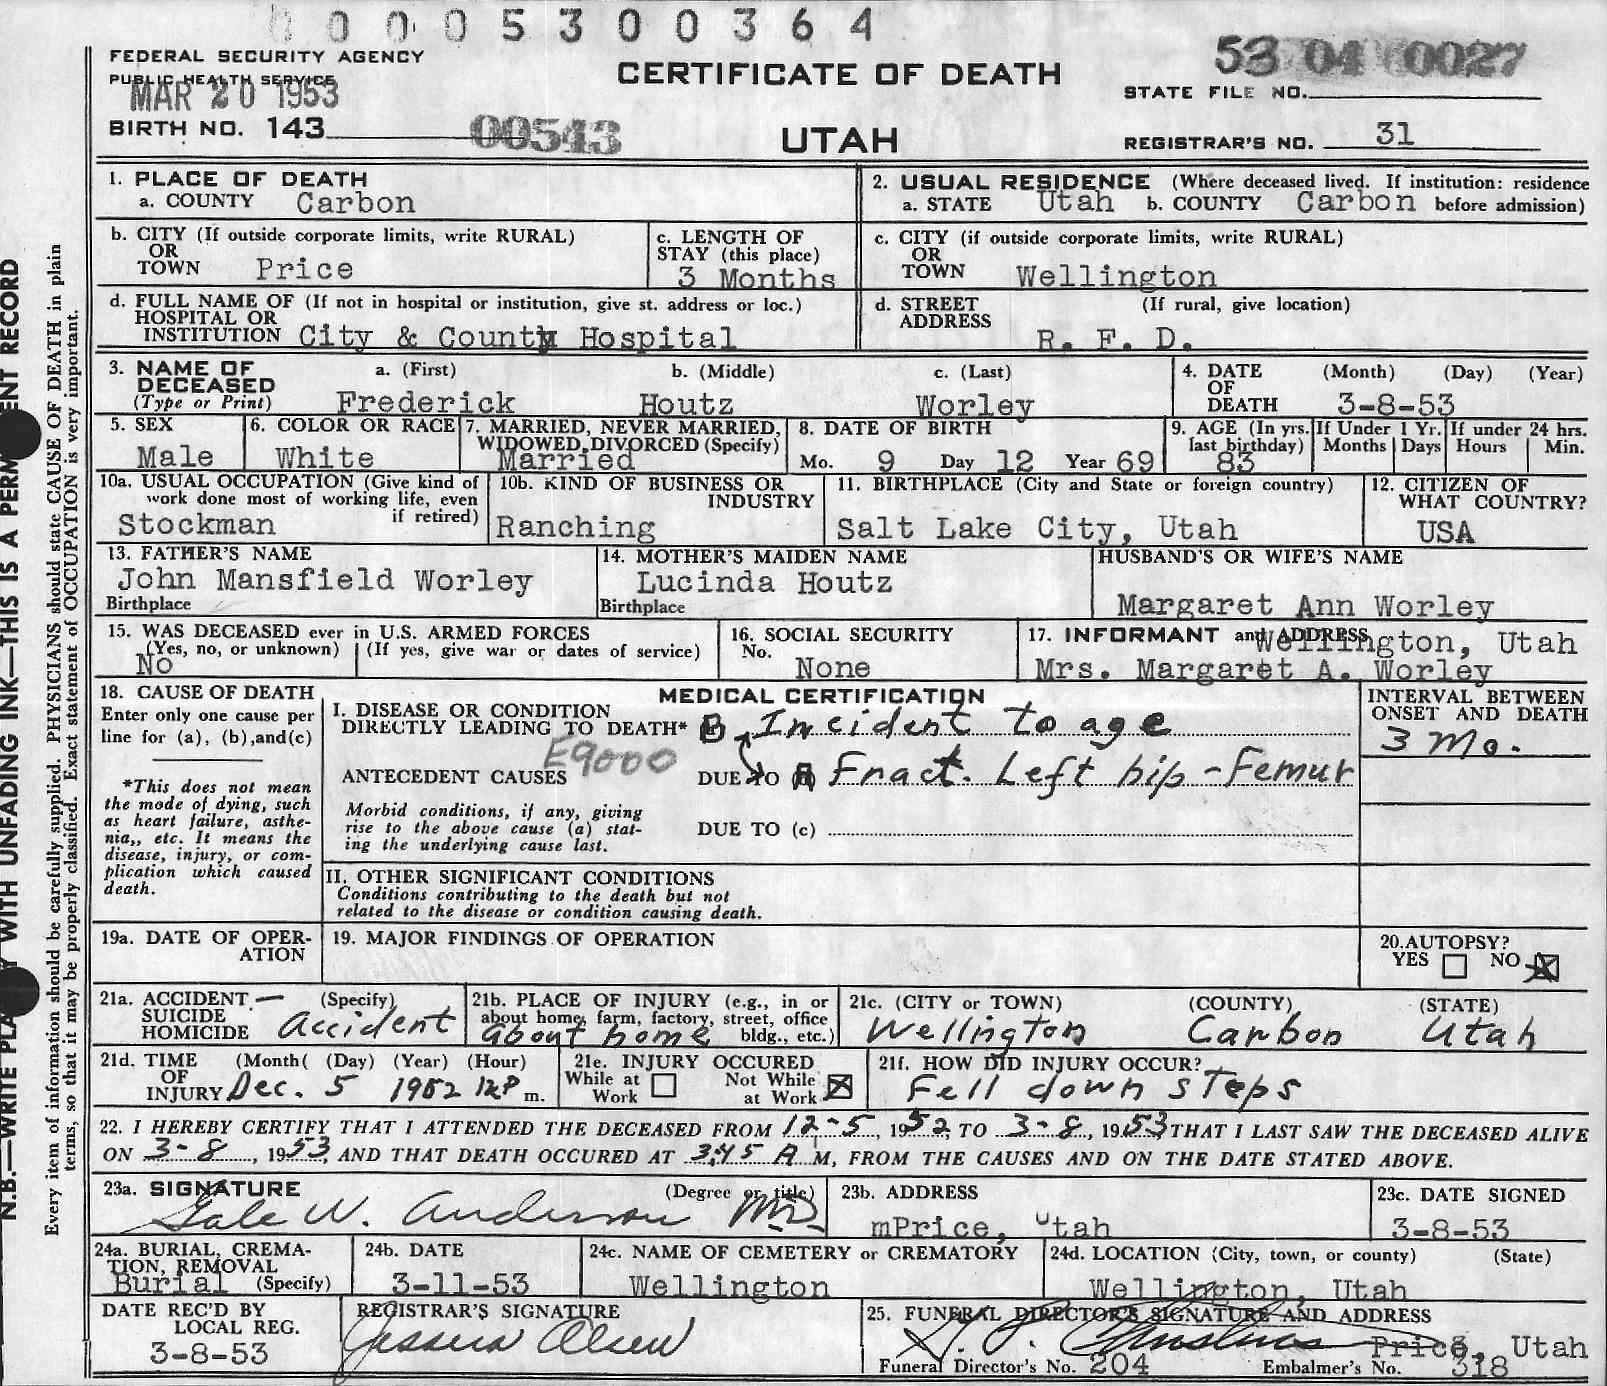 0 0 0 0 5 3 0 0 3 6 4
FEDERAL SECURITY AGENCY
PUBLIC HEALTH SERVICE
MAR 20 1953
CERTIFICATE OF DEATH
53 04 0027
STATE FILE NO.
BIRTH NO. 143
00543
UTAH
REGISTRAR'S NO. 31
1. PLACE OF DEATH
a. COUNTY Carbon
2. USUAL RESIDENCE (Where deceased lived. If institution: residence
a. STATE Utah b. COUNTY Carbon before admission)
b. CITY (If outside corporate limits, write RURAL)
OR
TOWN Price
c. LENGTH OF
STAY (this place)
3 Months
c. CITY (if outside corporate limits, write RURAL)
OR
TOWN Wellington
d. FULL NAME OF (If not in hospital or institution, give st. address or loc.)
HOSPITAL OR
INSTITUTION City & County Hospital
d. STREET (If rural, give location)
ADDRESS
R. F. D.
3. NAME OF a. (First) b. (Middle) c. (Last)
DECEASED
(Type or Print) Frederick Houtz Worley
4. DATE (Month) (Day) (Year)
OF
DEATH 3-8-53
5. SEX
Male
6. COLOR OR RACE
White
7. MARRIED, NEVER MARRIED,
WIDOWED, DIVORCED (Specify)
Married
8. DATE OF BIRTH
Mo. 9 Day 12 Year 69
9. AGE (In yrs.
last birthday)
83
If Under 1 Yr.
Months Days
If under 24 hrs.
Hours Min.
10a. USUAL OCCUPATION (Give kind of
work done most of working life, even
if retired)
Stockman
10b. KIND OF BUSINESS OR
INDUSTRY
Ranching
11. BIRTHPLACE (City and State or foreign country)
Salt Lake City, Utah
12. CITIZEN OF
WHAT COUNTRY?
USA
13. FATHER'S NAME
John Mansfield Worley
Birthplace
14. MOTHER'S MAIDEN NAME
Lucinda Houtz
Birthplace
HUSBAND'S OR WIFE'S NAME
Margaret Ann Worley
15. WAS DECEASED ever in U.S. ARMED FORCES
(Yes, no, or unknown) (If yes, give war or dates of service)
No
16. SOCIAL SECURITY
No.
None
17. INFORMANT and ADDRESS
Wellington, Utah
Mrs. Margaret A. Worley
18. CAUSE OF DEATH
Enter only one cause per
line for (a), (b),and(c)
*This does not mean
the mode of dying, such
as heart failure, asthe-
nia,, etc. It means the
disease, injury, or com-
plication which caused
death.
MEDICAL CERTIFICATION
I. DISEASE OR CONDITION
DIRECTLY LEADING TO DEATH* B Incident to age
E9000
ANTECEDENT CAUSES DUE TO A Fract. Left hip - Femur
Morbid conditions, if any, giving
rise to the above cause (a) stat-
ing the underlying cause last.
DUE TO (c)
II. OTHER SIGNIFICANT CONDITIONS
Conditions contributing to the death but not
related to the disease or condition causing death.
INTERVAL BETWEEN
ONSET AND DEATH
3 Mo.
19a. DATE OF OPER-
ATION
19. MAJOR FINDINGS OF OPERATION
20.AUTOPSY?
YES NO
21a. ACCIDENT (Specify)
SUICIDE
HOMICIDE Accident
21b. PLACE OF INJURY (e.g., in or
about home, farm, factory, street, office
bldg., etc.)
About home
21c. (CITY or TOWN) (COUNTY) (STATE)
Wellington Carbon Utah
21d. TIME (Month( (Day) (Year) (Hour)
OF
INJURY Dec. 5 1952 12P m.
21e. INJURY OCCURED
While at Work Not While at Work
21f. HOW DID INJURY OCCUR?
Fell down steps
22. I HEREBY CERTIFY THAT I ATTENDED THE DECEASED FROM 12-5, 1952, TO 3-8, 1953, THAT I LAST SAW THE DECEASED ALIVE
ON 3-8, 1953, AND THAT DEATH OCCURED AT 3:45 A M, FROM THE CAUSES AND ON THE DATE STATED ABOVE.
23a. SIGNATURE (Degree or title)
Gale W. Anderson MD
23b. ADDRESS
mPrice, Utah
23c. DATE SIGNED
3-8-53
24a. BURIAL, CREMA-
TION, REMOVAL
Burial (Specify)
24b. DATE
3-11-53
24c. NAME OF CEMETERY or CREMATORY
Wellington
24d. LOCATION (City, town, or county) (State)
Wellington, Utah
DATE REC'D BY
LOCAL REG.
3-8-53
REGISTRAR'S SIGNATURE
Jessera Olsen
25. FUNERAL DIRECTOR'S SIGNATURE AND ADDRESS
Price, Utah
Funeral Director's No. 204 Embalmer's No. 318
N.B.—WRITE WITH UNFADING INK—THIS IS A RECORD
Every item of information should be carefully supplied. PHYSICIANS should state CAUSE OF DEATH in plain
terms, so that it may be properly classified. Exact statement of OCCUPATION is very important.